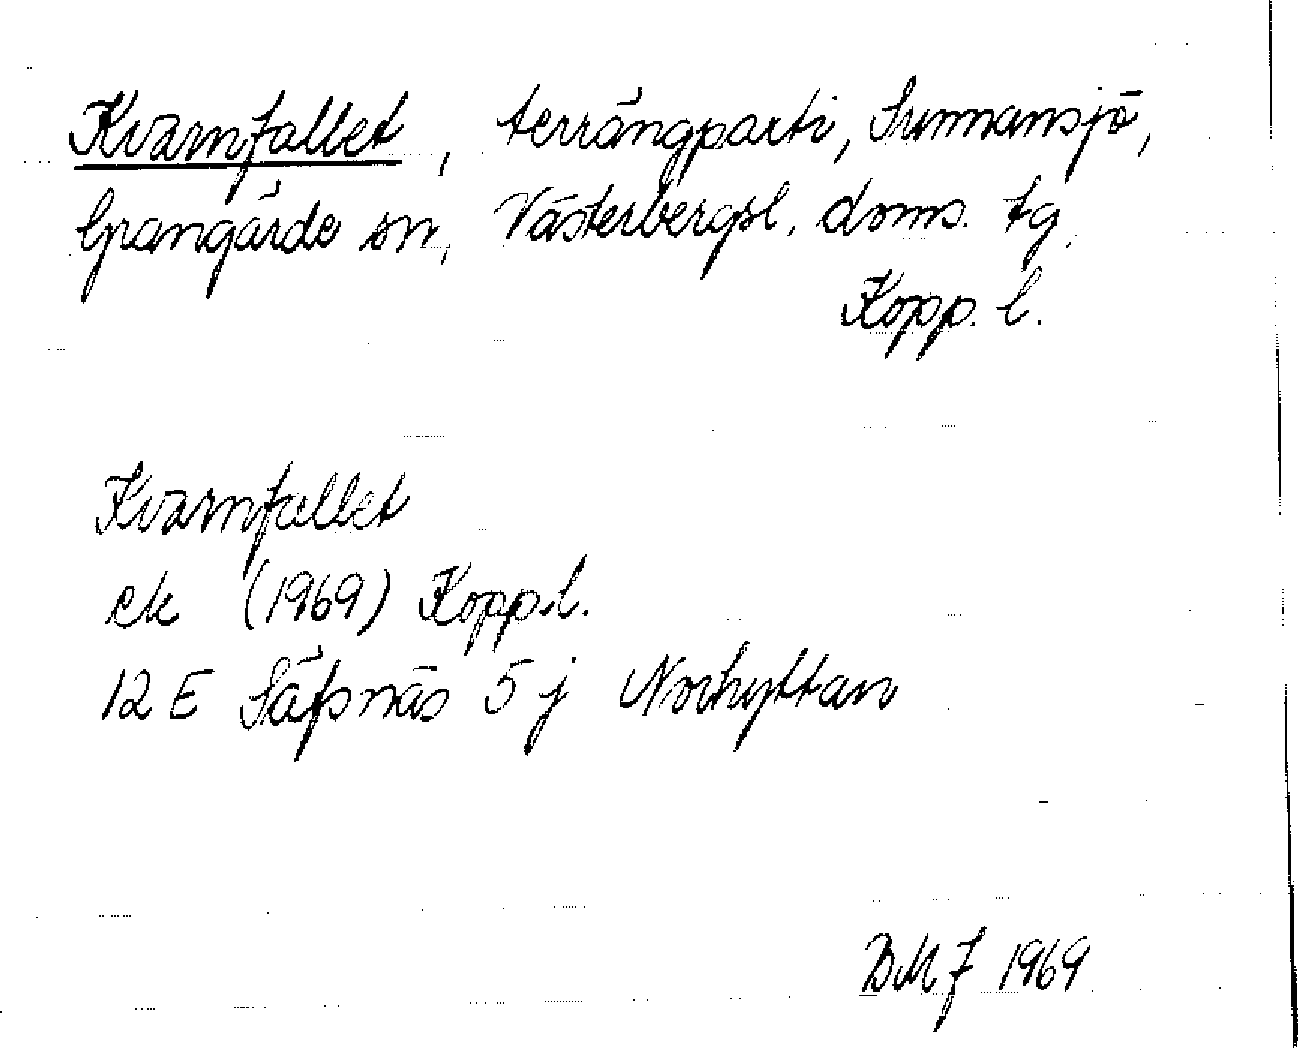 Kvarnfallet, terrängparti, Sunnansjö,
Grangärde sn, Västerbergsl. doms. tg,
Kopp. l.
Kvarnfallet
ek (1969) Kopp.l.
12 E Säfsnäs 5 j Norhyttan
BMJ 1969